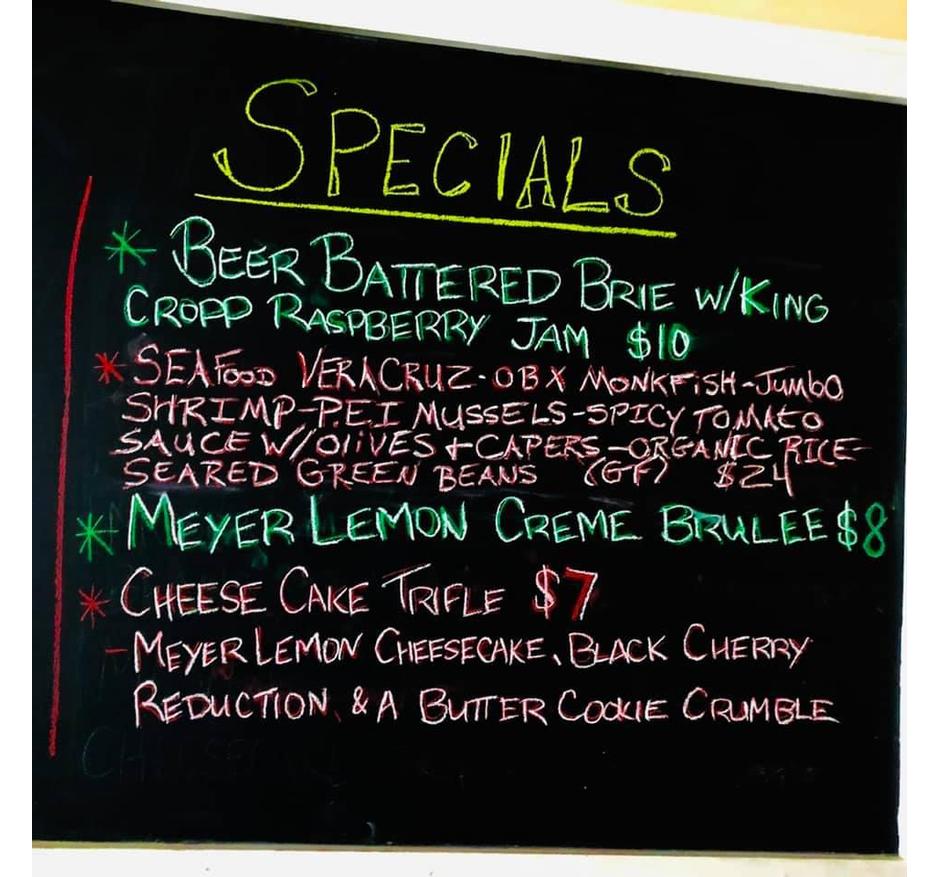 SPECIALS
* BEER BATTERED BRIE W/KING
CROPP RASPBERRY JAM $10
* SEAFOOD VERACRUZ-OBX MONKFISH-JUMBO
SHRIMP-P.E.I MUSSELS-SPICY TOMATO
SAUCE W/OLIVES + CAPERS-ORGANIC RICE-
SEARED GREEN BEANS (GF) $24
* MEYER LEMON CREME BRULEE $8
* CHEESE CAKE TRIFLE $7
- MEYER LEMON CHEESECAKE, BLACK CHERRY
REDUCTION, & A BUTTER COOKIE CRUMBLE